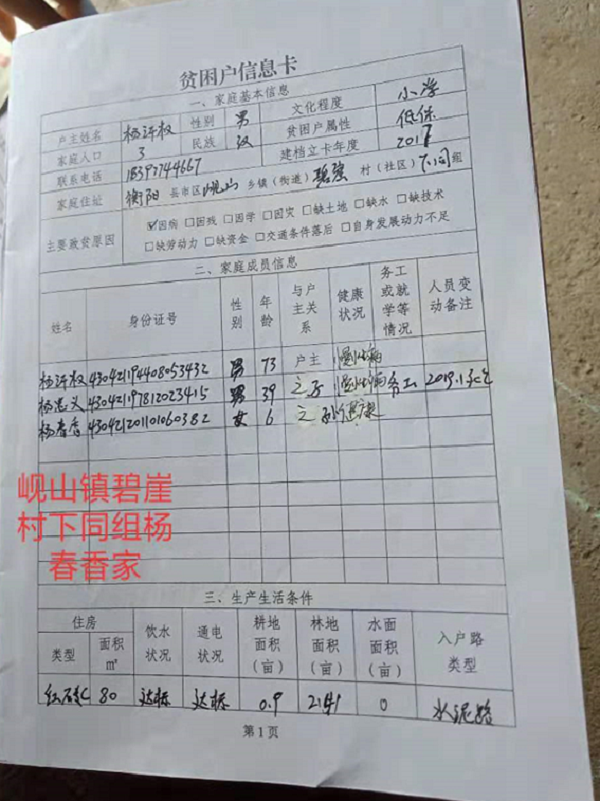 贫困户信息卡
一、家庭基本信息
户主姓名 杨许权 性别 男 文化程度 小学
家庭人口 3 民族 汉 贫困户属性 低保
联系电话 18392744667 建档立卡年度 2017
家庭住址 衡阳 县市区 岘山 乡镇(街道) 碧崖 村(社区) 下同组
主要致贫原因 ☑因病 □因残 □因学 □因灾 □缺土地 □缺水 □缺技术
□缺劳动力 □缺资金 □交通条件落后 □自身发展动力不足
二、家庭成员信息
姓名 身份证号 性别 年龄 与户主关系 健康状况 务工或就学等情况 人员变动备注
杨许权 430421194408053432 男 73 户主 慢性病
杨忠义 430421197812023415 男 39 之子 慢性病 务工 2019.1
杨春香 430421201101060382 女 6 之孙 健康
岘山镇碧崖
村下同组杨
春香家
三、生产生活条件
住房 饮水状况 通电状况 耕地面积(亩) 林地面积(亩) 水面面积(亩) 入户路类型
类型 面积㎡
80 达标 达标 0.9 2.41 0 水泥路
第1页